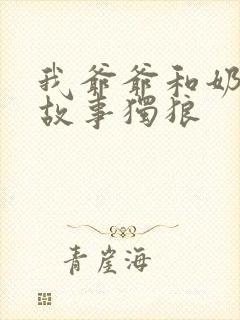 我爺爺和奶
故事獨狼
青崖海